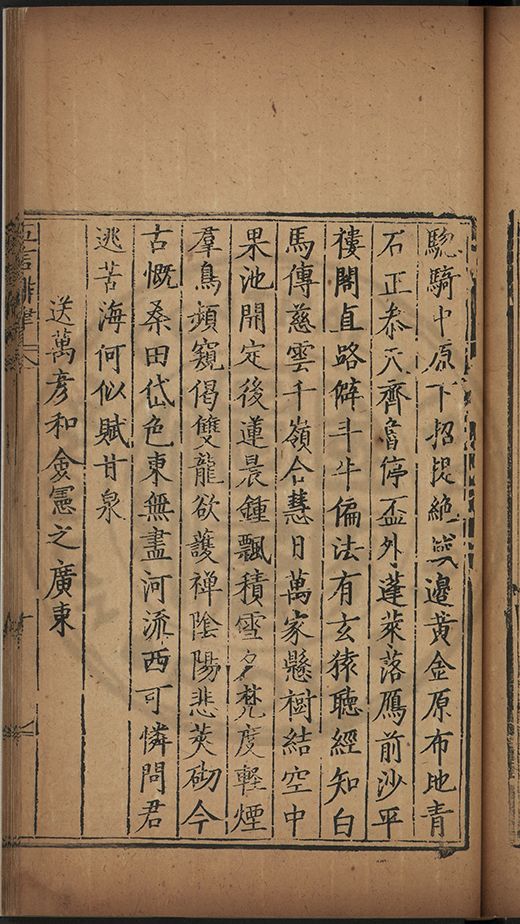 驄騎中原下招提絶邊黃金原布地青
石正叅天齊魯停盃外蓬萊落鴈前沙平
樓閣直路僻斗牛偏法有玄猿聽經知白
馬傳慈雲千嶺合慧日萬家懸樹結空中
果池開定後蓮晨鍾飄積雪夕梵度輕煙
羣鳥頻窺偈雙龍欲護禅隂陽悲莢砌今
古慨桑田岱色東無盡河流西可憐問君
逃苦海何似賦甘泉
送萬彥和僉憲之廣東
五言排律